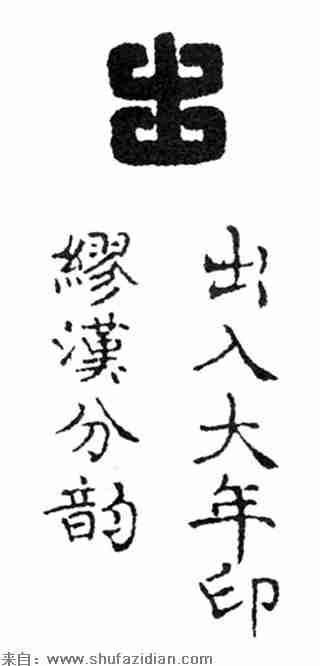 出
出入大年印
繆漢分韵
来自：www.shufazidian.com